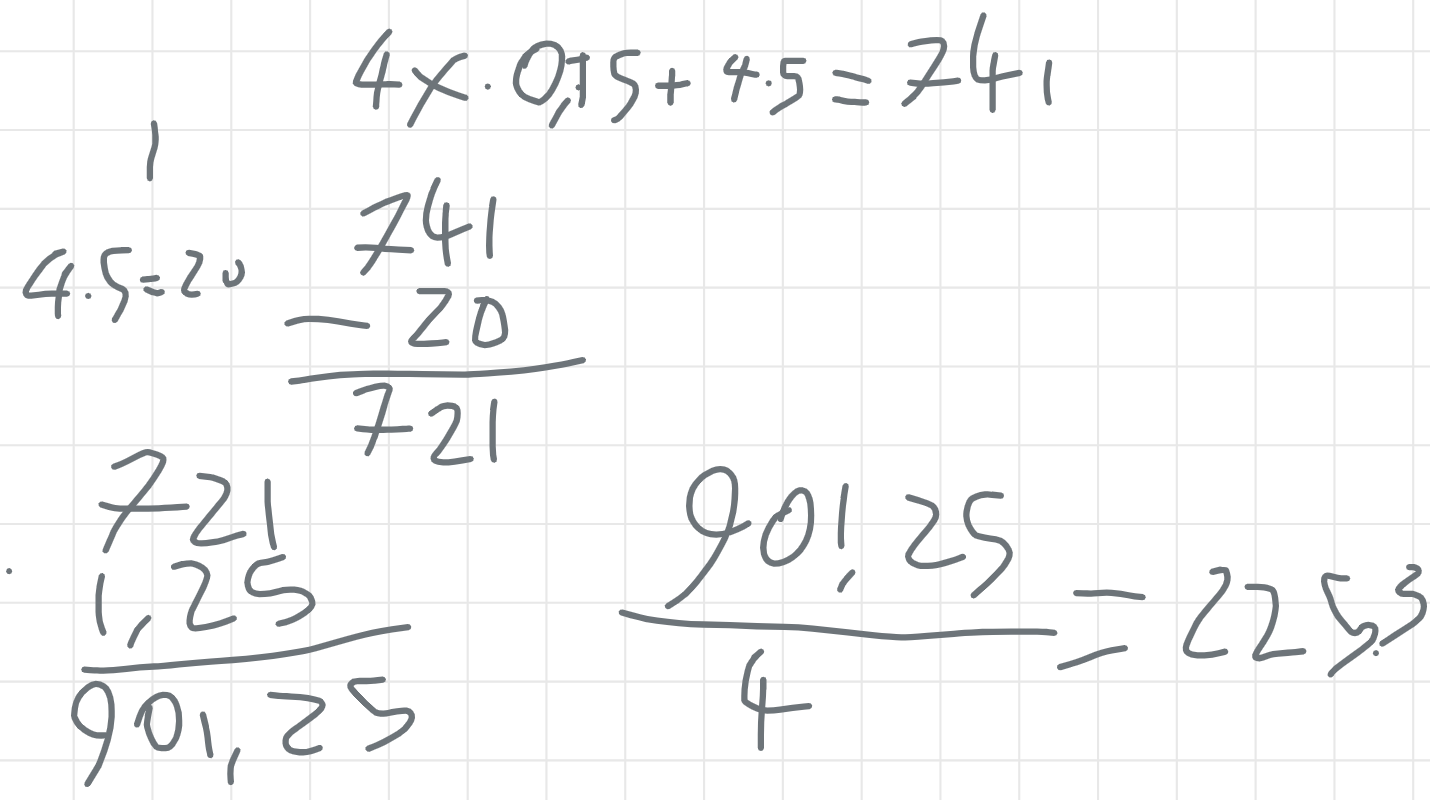 4x · 0,15 + 4·5 = 741
1
4·5=20
741
− 20
721
721
1,25
901,25
901,25
4
= 225,3